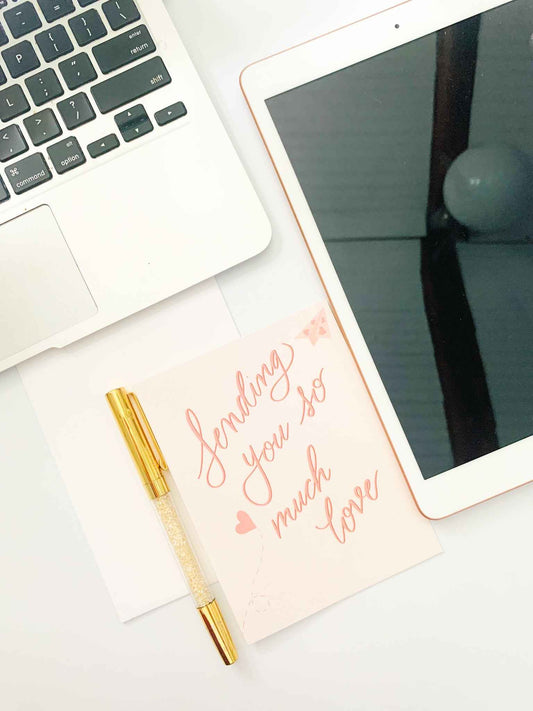 { [
} ]
| \
: ;
" '
enter
return
L
< ,
> .
? /
shift
⌘
command
alt
option
Sending
you so
much
love